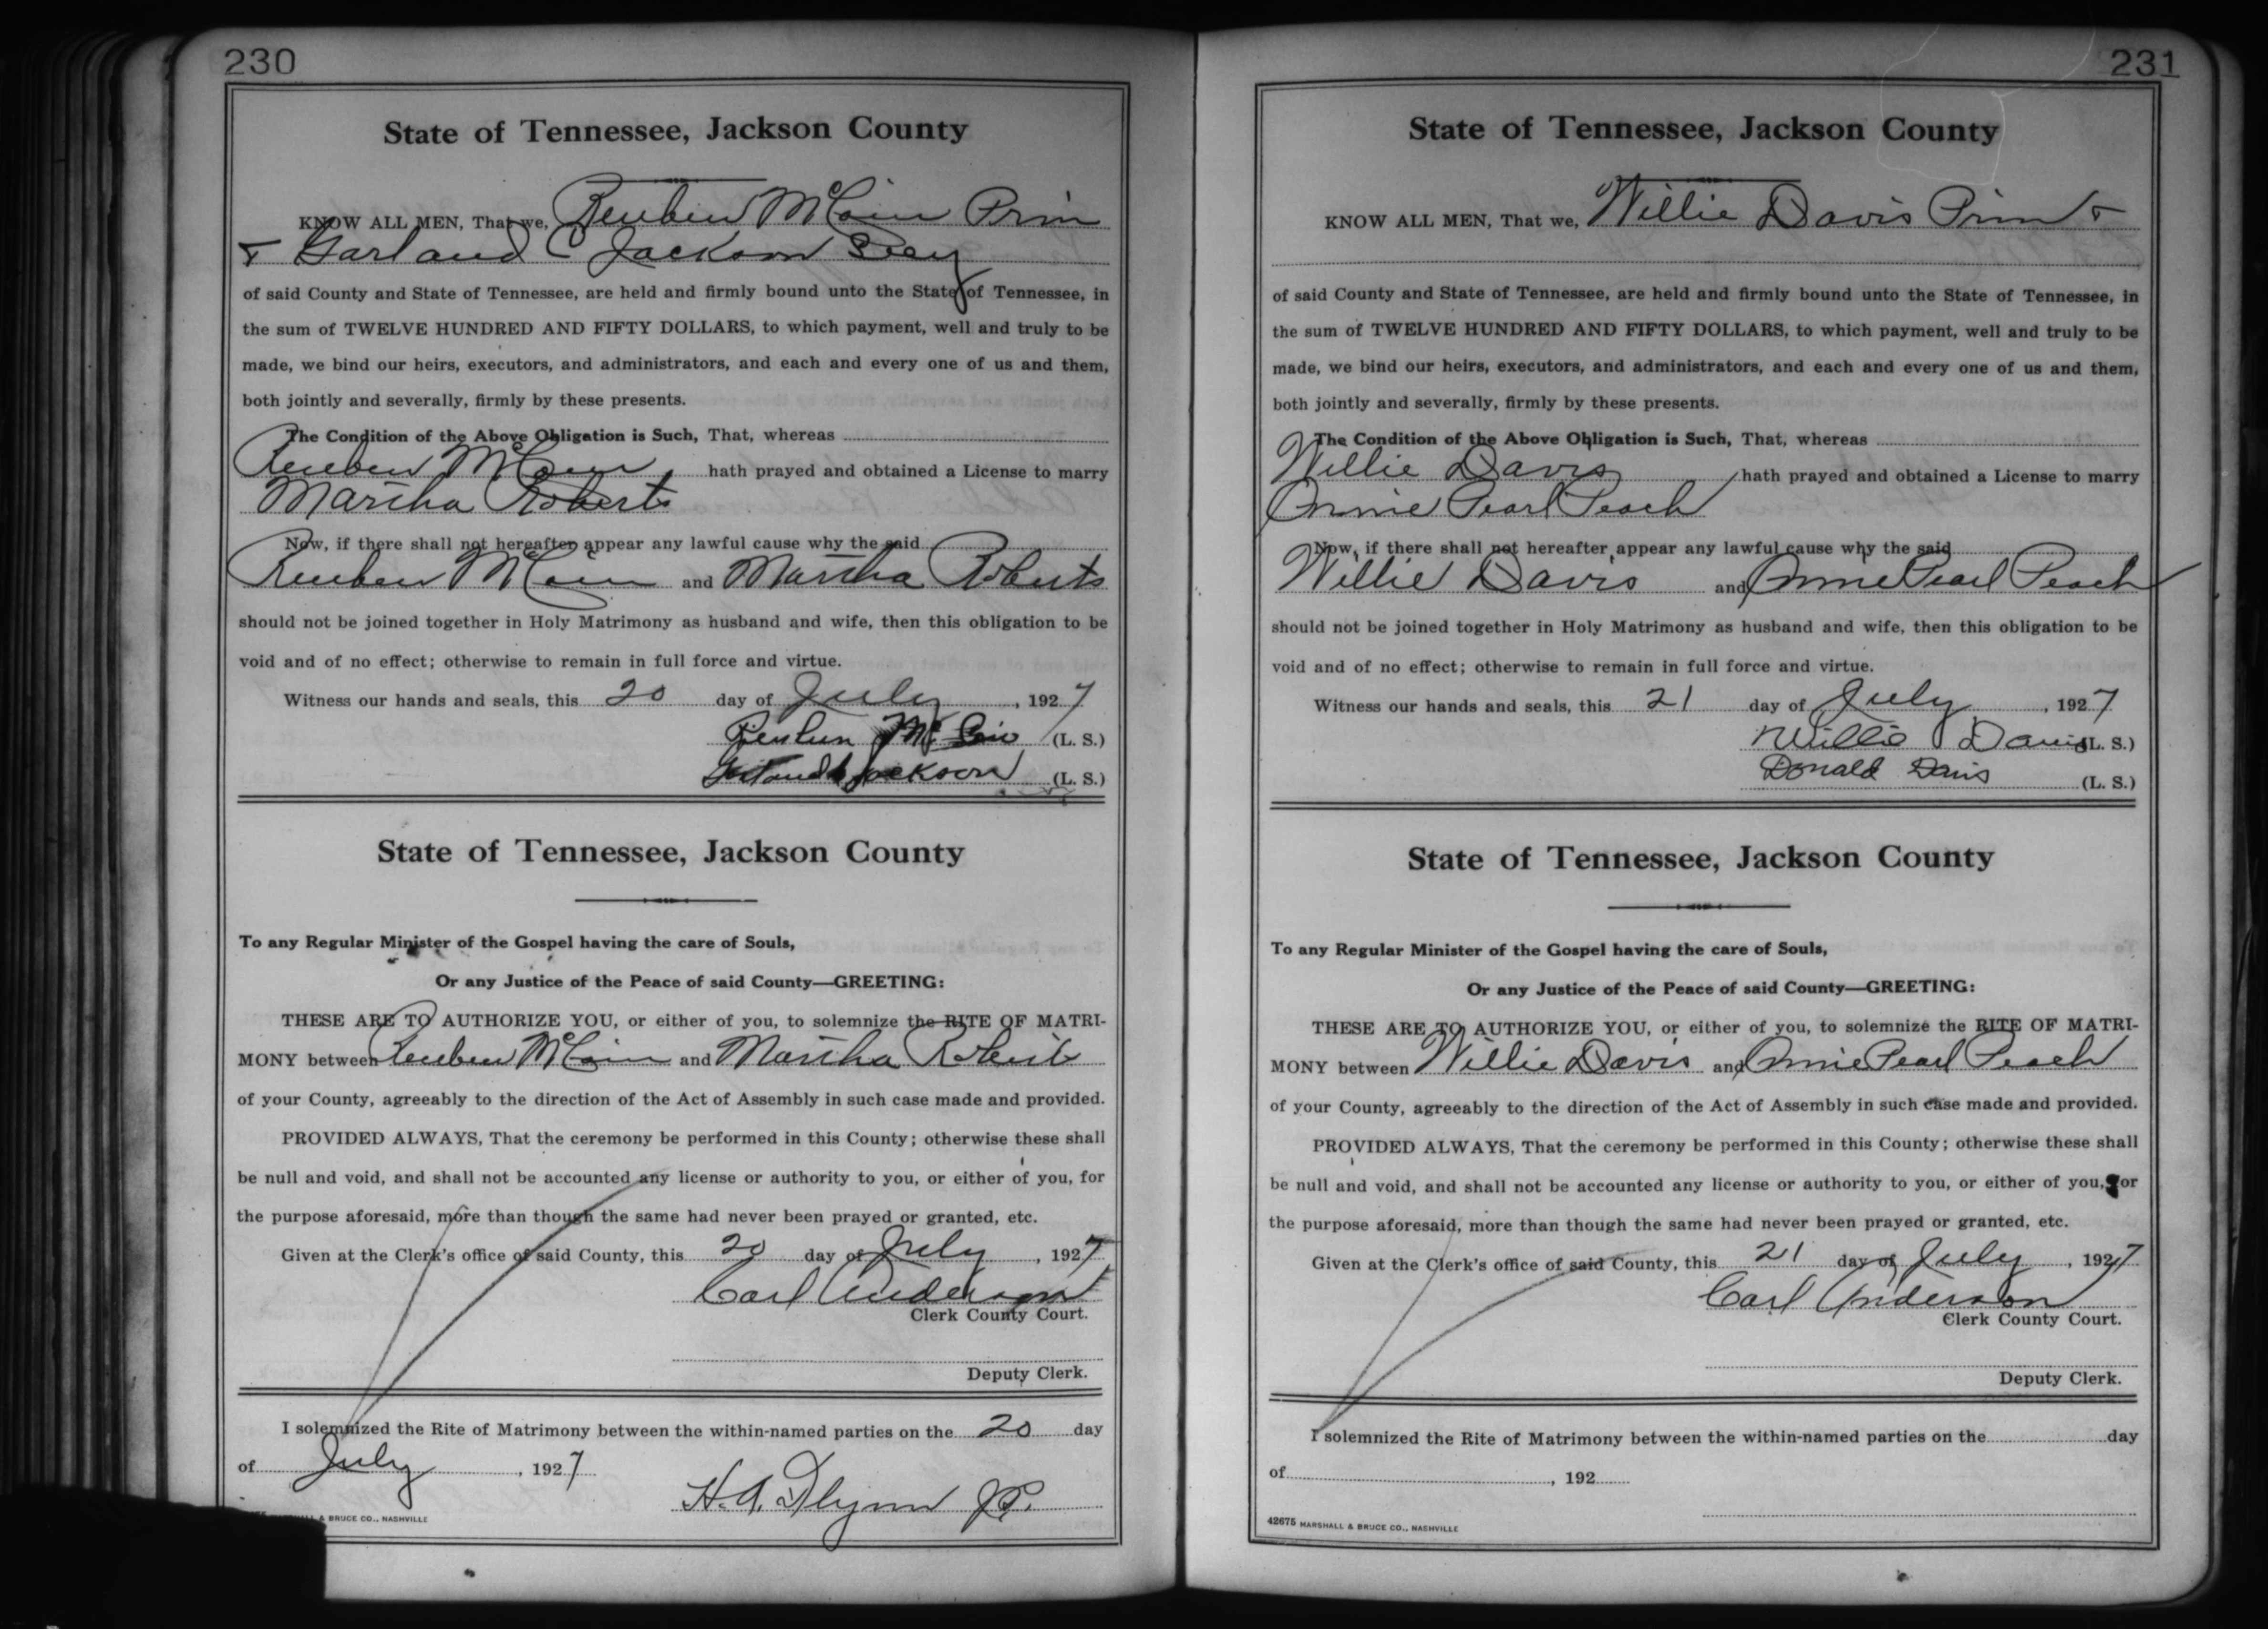 230
State of Tennessee, Jackson County
KNOW ALL MEN, That we, Reuben McCain Prin
& Garland C Jackson Secy
of said County and State of Tennessee, are held and firmly bound unto the State of Tennessee, in
the sum of TWELVE HUNDRED AND FIFTY DOLLARS, to which payment, well and truly to be
made, we bind our heirs, executors, and administrators, and each and every one of us and them,
both jointly and severally, firmly by these presents.
The Condition of the Above Obligation is Such, That, whereas
Reuben McCain hath prayed and obtained a License to marry
Martha Roberts
Now, if there shall not hereafter appear any lawful cause why the said
Reuben McCain and Martha Roberts
should not be joined together in Holy Matrimony as husband and wife, then this obligation to be
void and of no effect; otherwise to remain in full force and virtue.
Witness our hands and seals, this 20 day of July, 1927
Reuben McCain (L. S.)
Garland C Jackson (L. S.)
State of Tennessee, Jackson County
To any Regular Minister of the Gospel having the care of Souls,
Or any Justice of the Peace of said County—GREETING:
THESE ARE TO AUTHORIZE YOU, or either of you, to solemnize the RITE OF MATRI-
MONY between Reuben McCain and Martha Roberts
of your County, agreeably to the direction of the Act of Assembly in such case made and provided.
PROVIDED ALWAYS, That the ceremony be performed in this County; otherwise these shall
be null and void, and shall not be accounted any license or authority to you, or either of you, for
the purpose aforesaid, more than though the same had never been prayed or granted, etc.
Given at the Clerk's office of said County, this 20 day of July, 1927
Carl Anderson
Clerk County Court.
Deputy Clerk.
I solemnized the Rite of Matrimony between the within-named parties on the 20 day
of July, 1927
H. A. Flynn J.P.
& BRUCE CO., NASHVILLE
231
State of Tennessee, Jackson County
KNOW ALL MEN, That we, Willie Davis Prin &
of said County and State of Tennessee, are held and firmly bound unto the State of Tennessee, in
the sum of TWELVE HUNDRED AND FIFTY DOLLARS, to which payment, well and truly to be
made, we bind our heirs, executors, and administrators, and each and every one of us and them,
both jointly and severally, firmly by these presents.
The Condition of the Above Obligation is Such, That, whereas
Willie Davis hath prayed and obtained a License to marry
Annie Pearl Peach
Now, if there shall not hereafter appear any lawful cause why the said
Willie Davis and Annie Pearl Peach
should not be joined together in Holy Matrimony as husband and wife, then this obligation to be
void and of no effect; otherwise to remain in full force and virtue.
Witness our hands and seals, this 21 day of July, 1927
Willie Davis (L. S.)
Donald Davis (L. S.)
State of Tennessee, Jackson County
To any Regular Minister of the Gospel having the care of Souls,
Or any Justice of the Peace of said County—GREETING:
THESE ARE TO AUTHORIZE YOU, or either of you, to solemnize the RITE OF MATRI-
MONY between Willie Davis and Annie Pearl Peach
of your County, agreeably to the direction of the Act of Assembly in such case made and provided.
PROVIDED ALWAYS, That the ceremony be performed in this County; otherwise these shall
be null and void, and shall not be accounted any license or authority to you, or either of you, for
the purpose aforesaid, more than though the same had never been prayed or granted, etc.
Given at the Clerk's office of said County, this 21 day of July, 1927
Carl Anderson
Clerk County Court.
Deputy Clerk.
I solemnized the Rite of Matrimony between the within-named parties on the day
of , 192
42675 MARSHALL & BRUCE CO., NASHVILLE